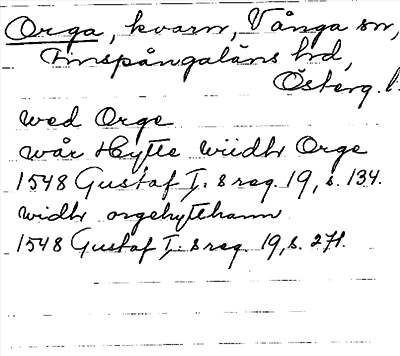 Orga, kvarn, Vånga sn,
Finspångaläns hd,
Österg. l.
wed Orge
wår Hytte wiidh Orge
1548 Gustaf I:s reg. 19, s. 134.
widh orgehytthann
1548 Gustaf I:s reg. 19, s. 271.